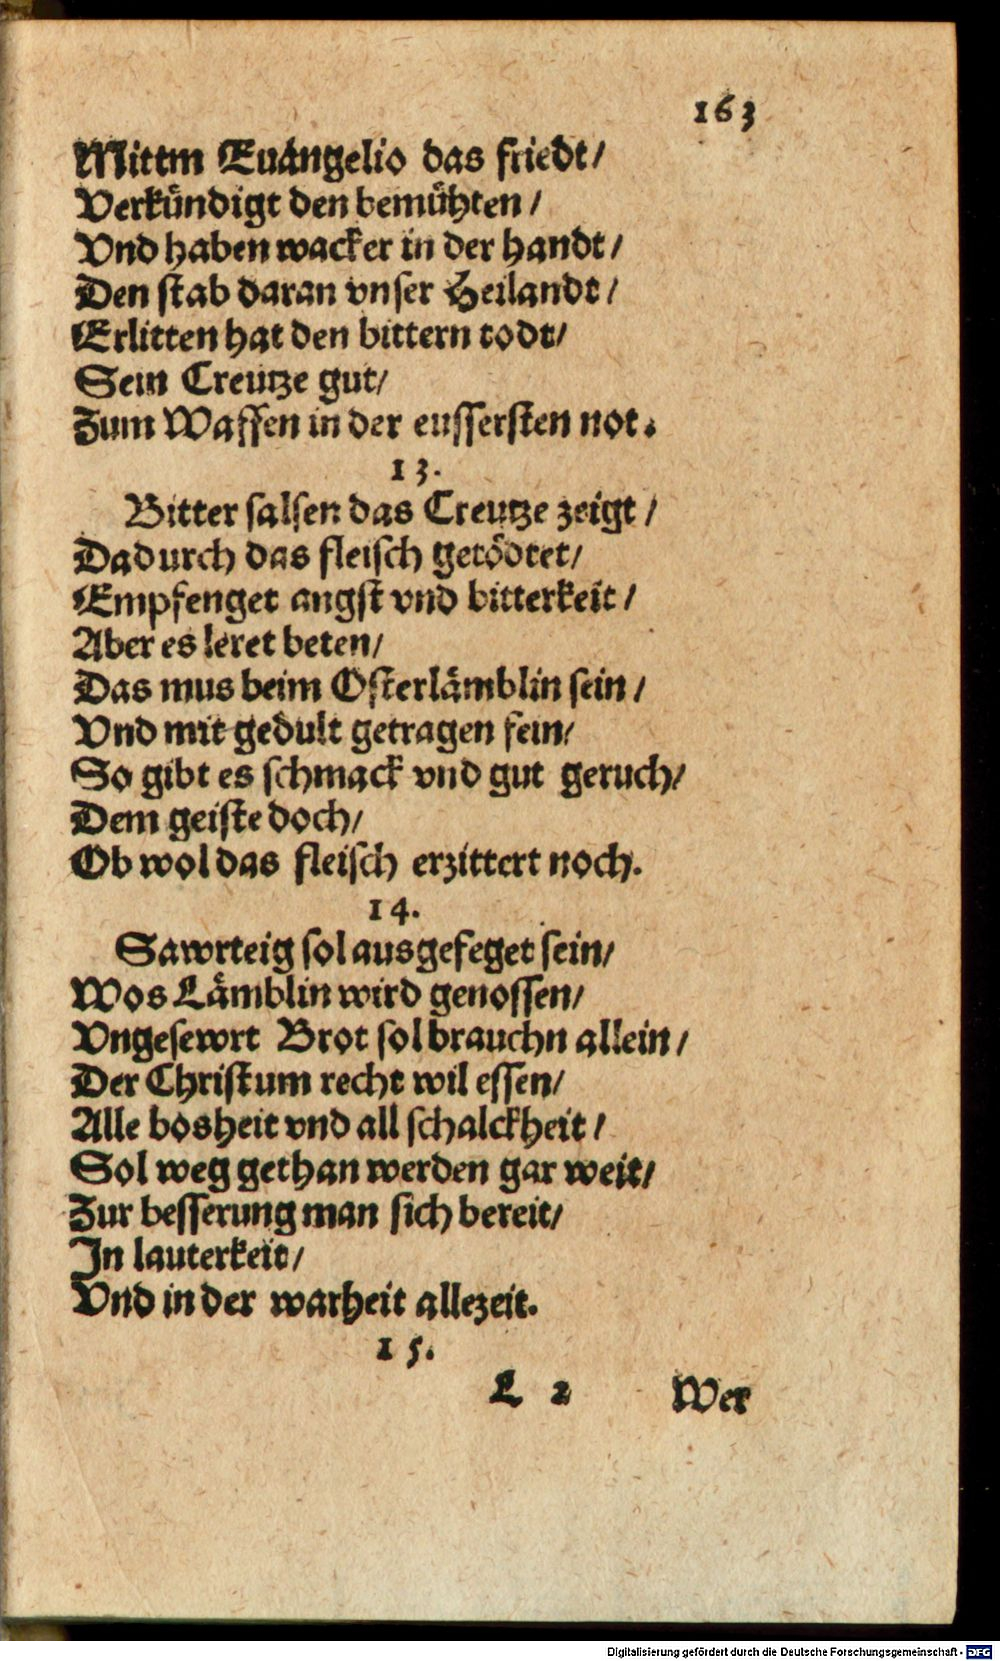 163
Mittm Euangelio das friedt/
Verkündigt den bemühten/
Vnd haben wacker in der handt/
Den stab daran vnser Heilandt/
Erlitten hat den bittern todt/
Sein Creutze gut/
Zum Waffen in der eussersten not.
13.
Bitter salsen das Creutze zeigt/
Dadurch das fleisch getödtet/
Empfenget angst vnd bitterkeit/
Aber es leret beten/
Das mus beim Osterlämblin sein/
Vnd mit gedult getragen fein/
So gibt es schmack vnd gut geruch/
Dem geiste doch/
Ob wol das fleisch erzittert noch.
14.
Sawrteig sol ausgefeget sein/
Wos Lämblin wird genossen/
Vngesewrt Brot sol brauchn allein/
Der Christum recht wil essen/
Alle bosheit vnd all schalckheit/
Sol weg gethan werden gar weit/
Zur besserung man sich bereit/
In lauterkeit/
Vnd in der warheit allezeit.
15.
L 2 Wer
Digitalisierung gefördert durch die Deutsche Forschungsgemeinschaft - DFG